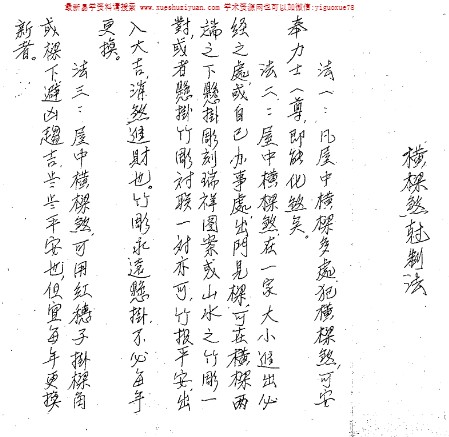 最新易学资料请搜索 www.xueshuziyuan.com 学术资源网也可以加微信:yiguoxue78
橫樑煞射制法
法一:凡屋中橫樑多處犯橫樑煞,可安
奉力士一尊,即能化煞矣。
法二:屋中橫樑煞在一家大小進出必
經之處或自已办事處,出門見樑,可在橫樑两
端之下懸掛彫刻瑞祥图案或山水之竹彫一
對,或者懸掛竹彫对联一对亦可,竹报平安,出
入大吉,消煞進財也。竹彫永遠懸掛,不必每年
更換。
法三:屋中橫樑煞可用紅穗子掛樑角
或樑下避凶趨吉,歲歲平安也,但宜每年更换
新者。